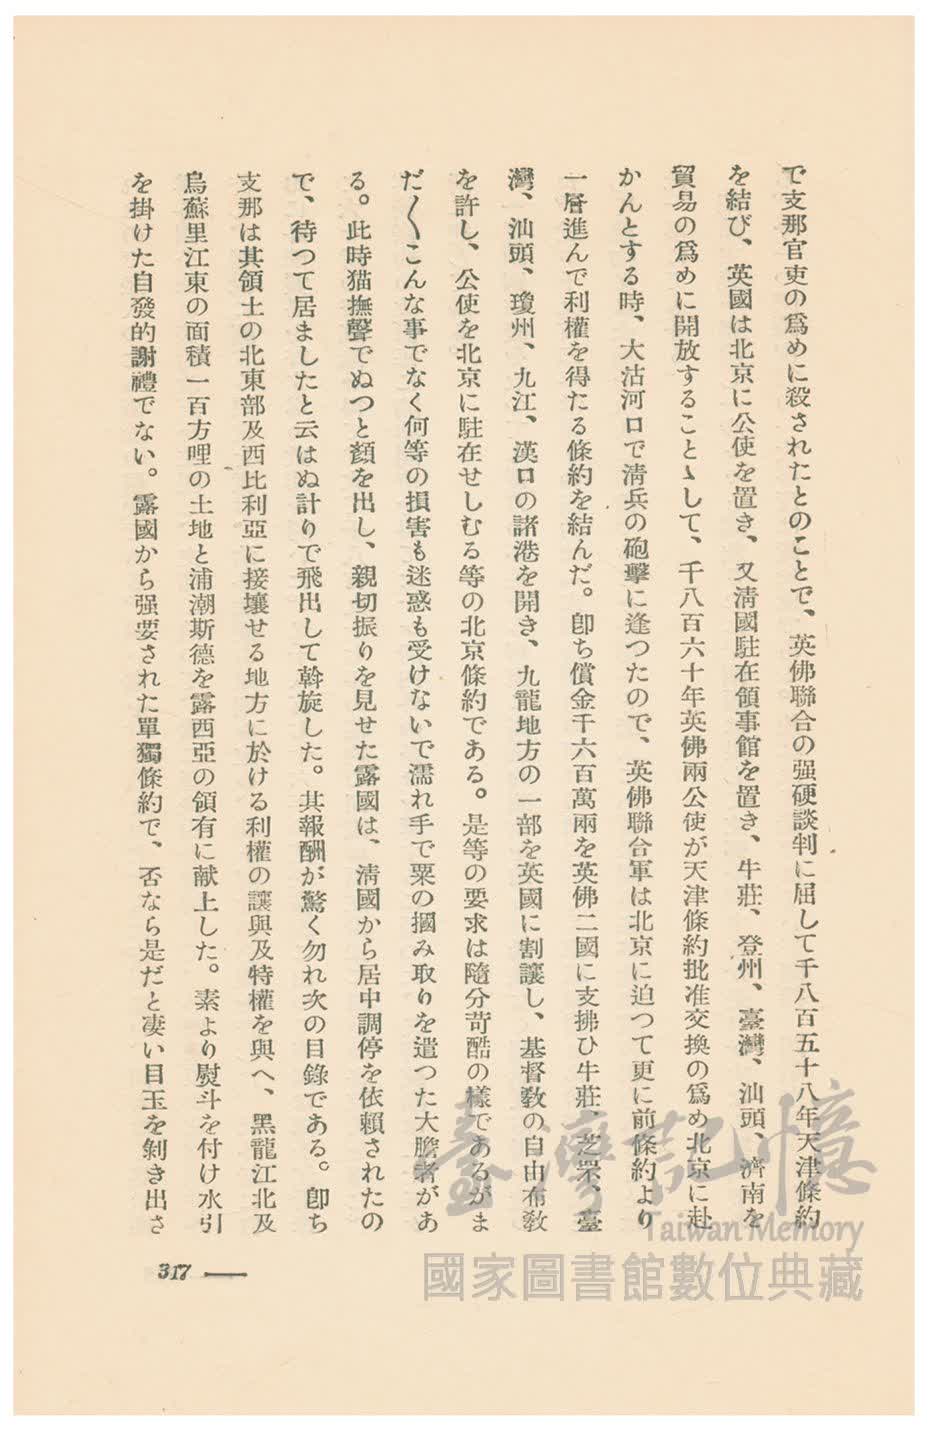 で支那官吏の爲めに殺されたとのことで、英佛聯合の强硬談判に屈して千八百五十八年天津條約
を結び、英國は北京に公使を置き、又淸國駐在領事館を置き、牛莊、登州、臺灣、汕頭、濟南を
貿易の爲めに開放することゝして、千八百六十年英佛兩公使が天津條約批准交換の爲め北京に赴
かんとする時、大沽河口で淸兵の砲擊に逢つたので、英佛聯合軍は北京に迫つて更に前條約より
一層進んで利權を得たる條約を結んだ。卽ち償金千六百萬兩を英佛二國に支拂ひ牛莊、芝罘、臺
灣、汕頭、瓊州、九江、漢口の諸港を開き、九龍地方の一部を英國に割讓し、基督敎の自由布敎
を許し、公使を北京に駐在せしむる等の北京條約である。是等の要求は隨分苛酷の樣であるがま
だ〱こんな事でなく何等の損害も迷惑も受けないで濡れ手で粟の摑み取りを遣つた大膽者があ
る。此時猫撫聲でぬつと顏を出し、親切振りを見せた露國は、淸國から居中調停を依賴されたの
で、待つて居ましたと云はぬ計りで飛出して斡旋した。其報酬が驚く勿れ次の目錄である。卽ち
支那は其領土の北東部及西比利亞に接壤せる地方に於ける利權の讓與及特權を與へ、黑龍江北及
烏蘇里江東の面積一百方哩の土地と浦潮斯德を露西亞の領有に献上した。素より熨斗を付け水引
を掛けた自發的謝禮でない。露國から强要された單獨條約で、否なら是だと凄い目玉を剝き出さ
317
臺灣記憶
Taiwan Memory
國家圖書館數位典藏